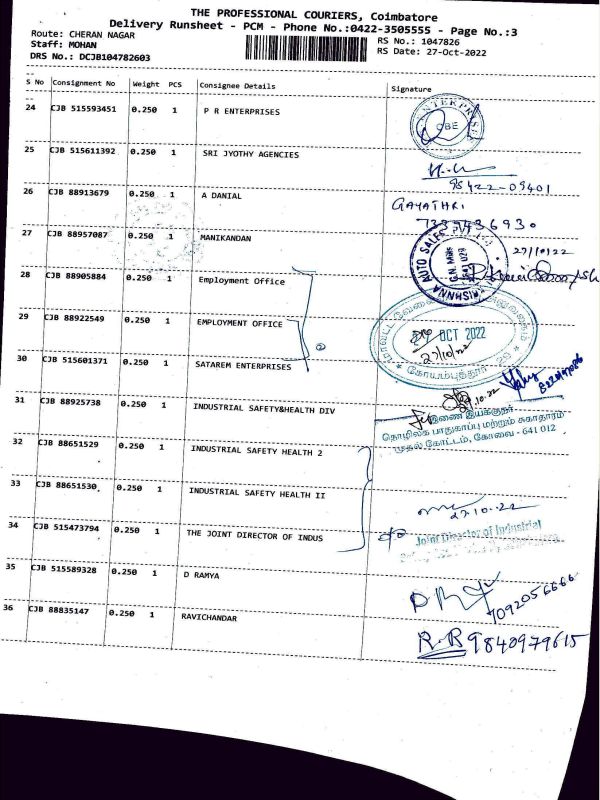 THE PROFESSIONAL COURIERS, Coimbatore
Delivery Runsheet - PCM - Phone No.:0422-3505555 - Page No.:3
Route: CHERAN NAGAR RS No.: 1047826
Staff: MOHAN RS Date: 27-Oct-2022
DRS No.: DCJB104782603
S No Consignment No Weight PCS Consignee Details Signature
24 CJB 515593451 0.250 1 P R ENTERPRISES
ENTERPRISES
CBE
25 CJB 515611392 0.250 1 SRI JYOTHY AGENCIES
98422-09401
26 CJB 88913679 0.250 1 A DANIAL GAYATHRI
27 CJB 88957087 0.250 1 MANIKANDAN 27/10/22
KRISHNNA AUTO SALES
28 CJB 88905884 0.250 1 Employment Office
29 CJB 88922549 0.250 1 EMPLOYMENT OFFICE
OCT 2022
27/10/22
கோயம்புத்தூர்
30 CJB 515601371 0.250 1 SATAREM ENTERPRISES
31 CJB 88925738 0.250 1 INDUSTRIAL SAFETY&HEALTH DIV
இணை இயக்குநர்
தொழிலக பாதுகாப்பு மற்றும் சுகாதாரம்
முதல் கோட்டம், கோவை - 641 012
32 CJB 88651529 0.250 1 INDUSTRIAL SAFETY HEALTH 2
33 CJB 88651530 0.250 1 INDUSTRIAL SAFETY HEALTH II
27.10.22
34 CJB 515473794 0.250 1 THE JOINT DIRECTOR OF INDUS
Joint Director of Industrial
35 CJB 515589328 0.250 1 D RAMYA
7092056666
36 CJB 88835147 0.250 1 RAVICHANDAR
R.B 9840979615